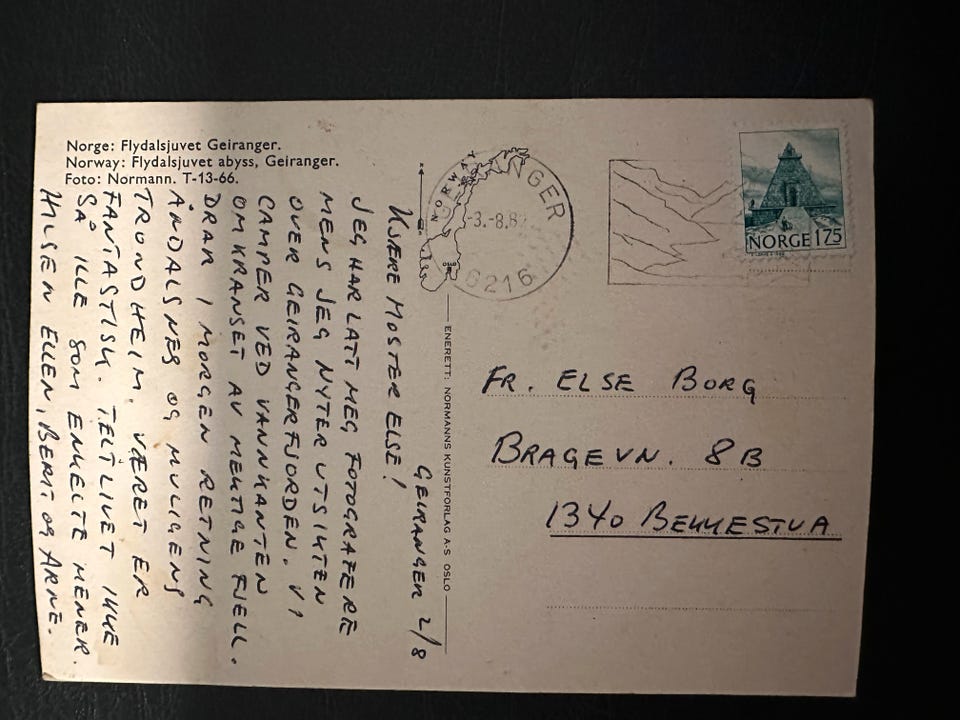 Norge: Flydalsjuvet Geiranger.
Norway: Flydalsjuvet abyss, Geiranger.
Foto: Normann. T-13-66.
GEIRANGER 2/8
KJÆRE MOSTER ELSE!
JEG HAR LATT MEG FOTOGRAFERE
MENS JEG NYTER UTSIKTEN
OVER GEIRANGERFJORDEN. VI
CAMPER VED VANNKANTEN
OMKRANSET AV MEKTIGE FJELL.
DRAR I MORGEN RETNING
ÅNDALSNES OG MULIGENS
TRONDHEIM. VÆRET ER
FANTASTISK. TELTLIVET IKKE
SÅ ILLE SOM ENKELTE MENER.
HILSEN ELLEN, BERIT OG ARNE.
NORWAY
OSLO
ENERETT: NORMANNS KUNSTFORLAG A-S OSLO
-3.-8.82
6216
NORGE 175
FR. ELSE BORG
BRAGEVN. 8B
1340 BEKKESTUA